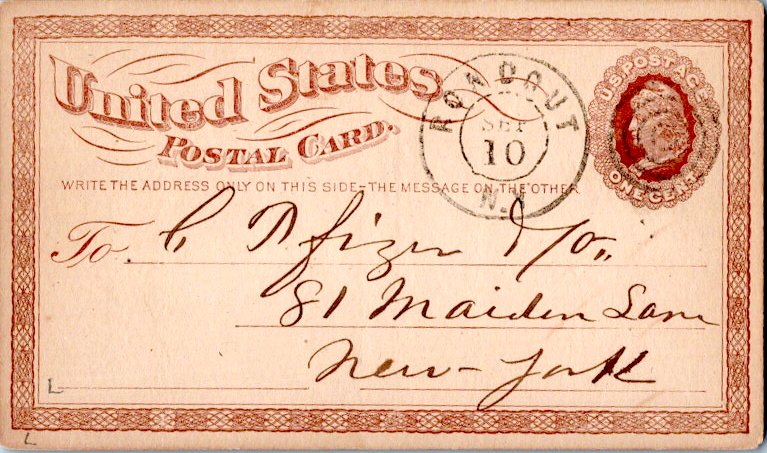 United States
POSTAL CARD.
RONDOUT
SEP
10
N.Y
U.S. POSTAGE
ONE CENT
WRITE THE ADDRESS ONLY ON THIS SIDE-THE MESSAGE ON THE OTHER
To C Pfizer & Co.,
81 Maiden Lane
New-York
L
L